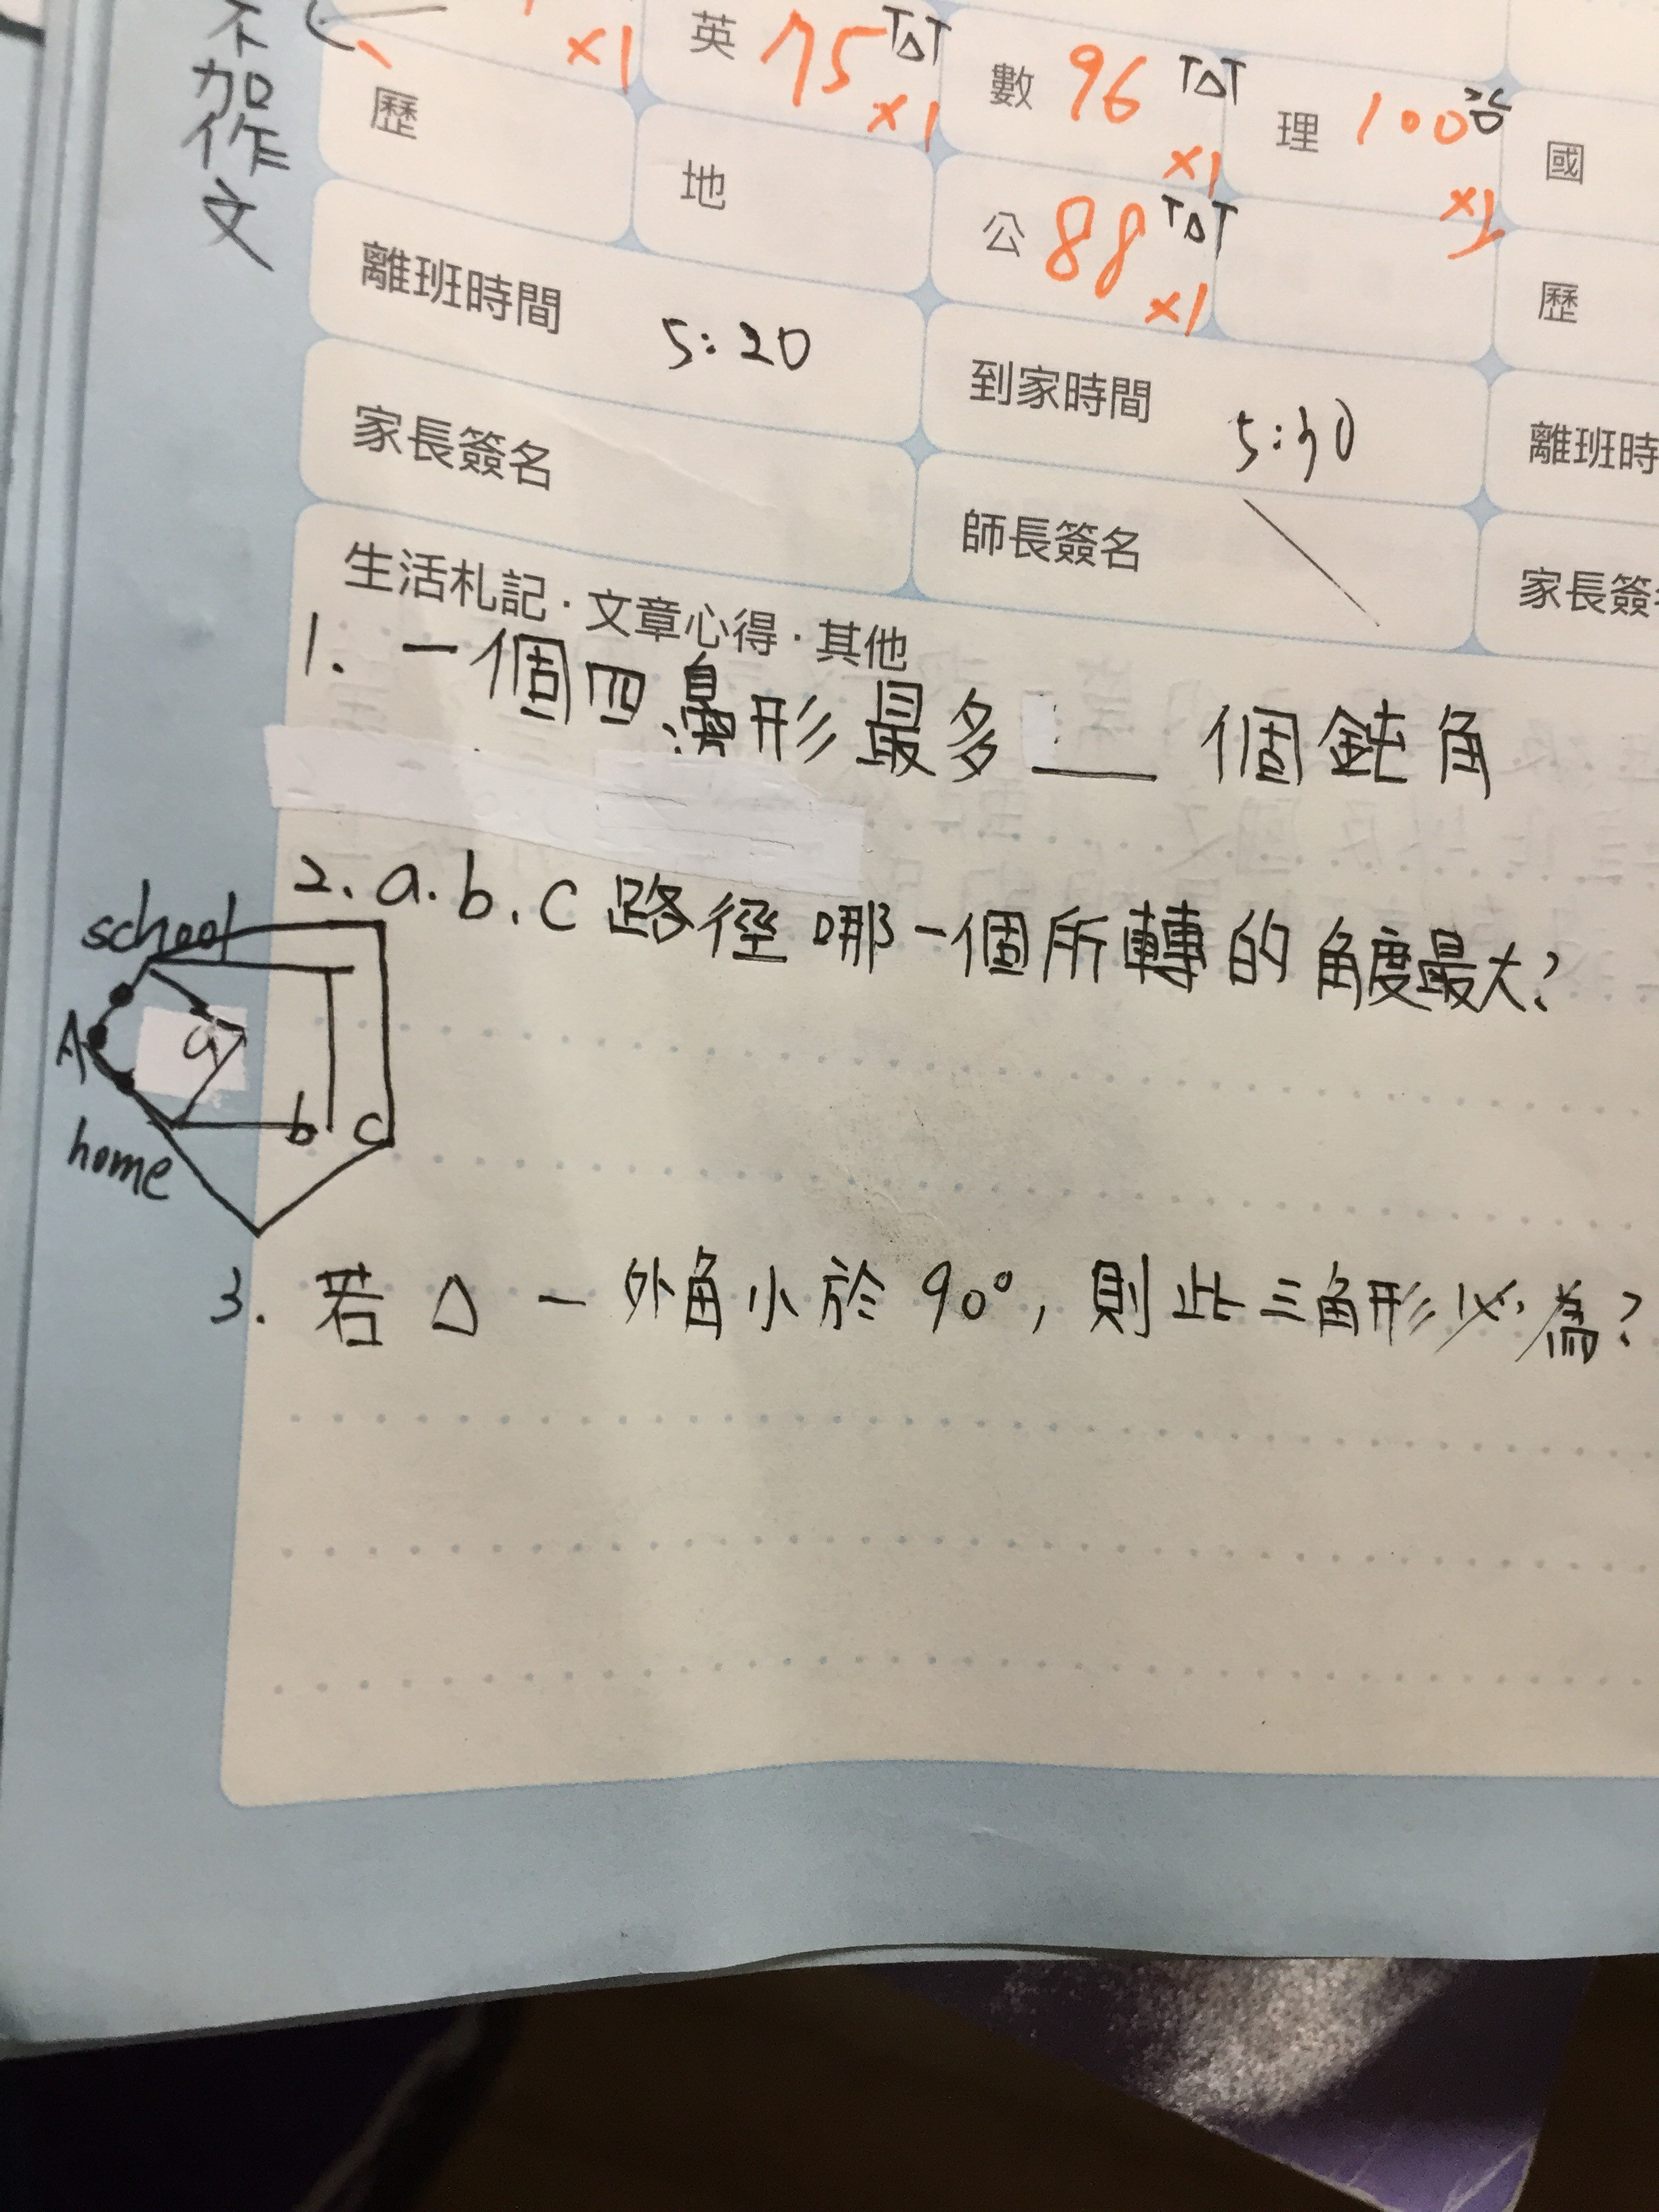 不加作文
×1
英 75 TAT ×1
數 96 TAT ×1
理 100 ×1
國
歷
地
公 88 TAT ×1
歷
離班時間 5:20
到家時間 5:30
離班時
家長簽名
師長簽名
家長簽
生活札記·文章心得·其他
1. 一個四邊形最多___個鈍角
2. a.b.c路徑哪一個所轉的角度最大?
school
A
a
b
c
home
3. 若 △ 一外角小於 90°, 則此三角形必為?